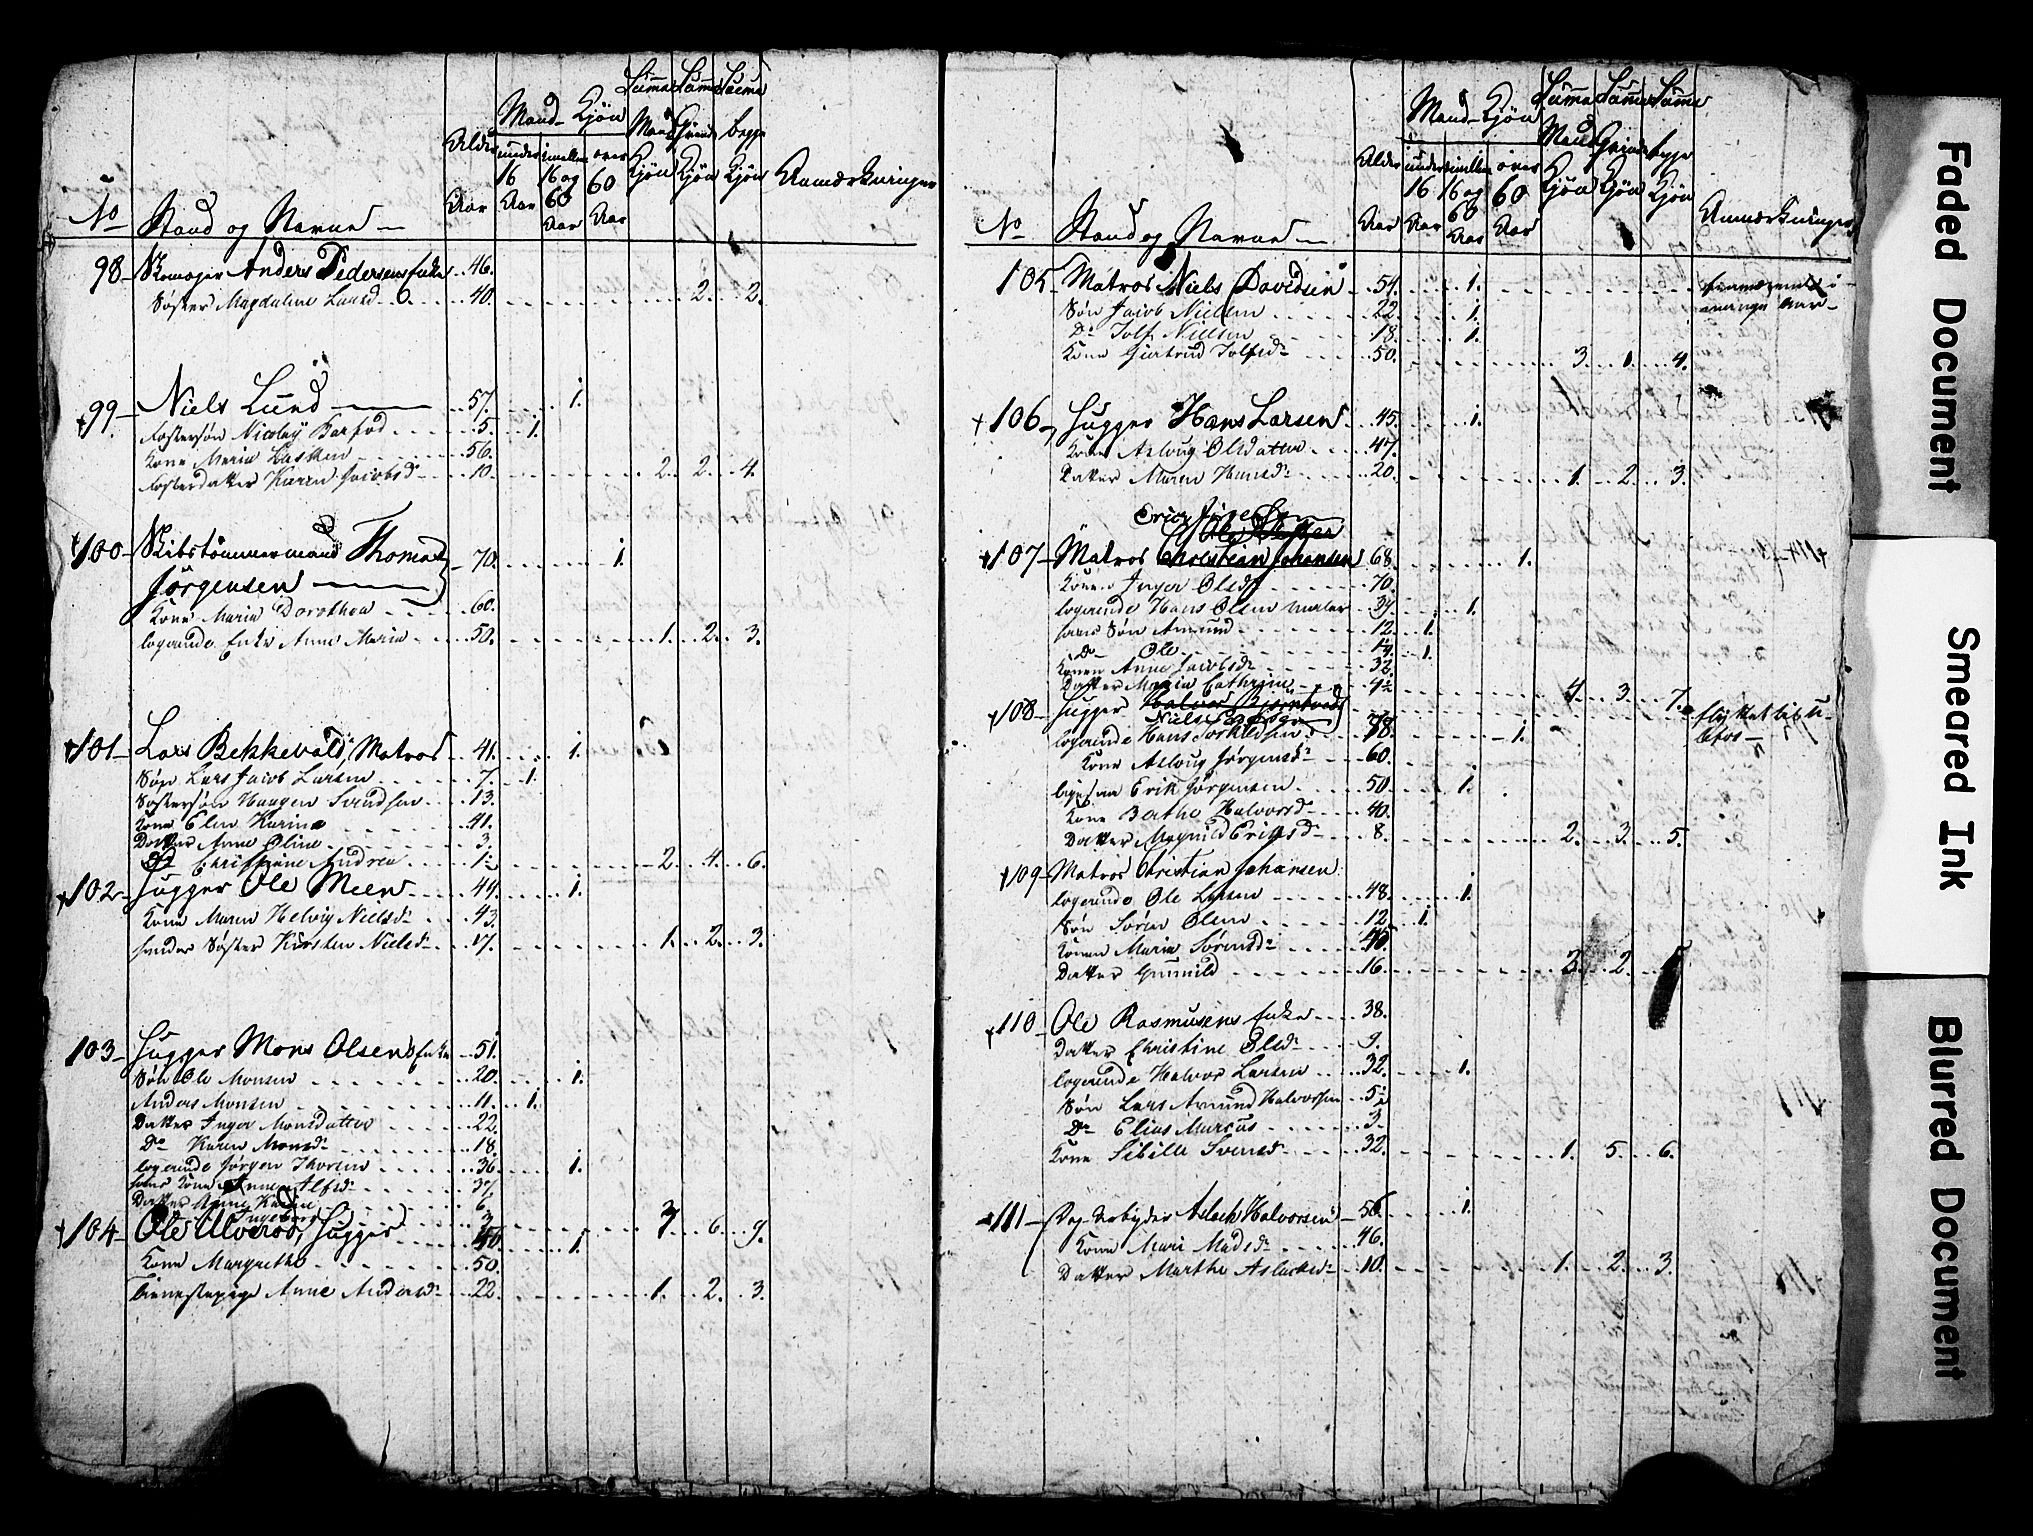 No Stand og Navne Alder Aar Mand Kjön under 16 Aar imellem 16 og 60 Aar over 60 Aar Summa Mand Kjön Summa Qvinde Kjön Summa begge Kjön Anmærkninger
98 Skomager Anders Pedersens Enke 46.
Søster Magdalene Larsd 40. 2. 2.
99 Niels Lund 57. 1.
fostersön Nicolay Barfod 5. 1.
Kone Maria 56.
fosterdatter Karen Jacobsd 10. 2. 2. 4.
100 Skibstömmermand Thomas 70. 1.
Jörgensen
Kone Maria Dorothea 60.
logerende Enke Anne Maria 50. 1. 2. 3.
101 Lars Bekkevold, Matros 41. 1.
Sön Lars Jacob Larsen 7. 1.
Söstersön Haagen Svendsen 13.
Kone Elen Karine 41.
Datter Anne Oline 3.
Do Christine Andrea 1½ 2. 4. 6.
102 Hugger Ole Meen 44. 1.
Kone Maren Helvig Nielsd 43.
hendes Söster Kirsten Nielsd 17. 1. 2. 3.
103 Hugger Mons Olsens Enke 51.
Sön Ole Monsen 20. 1.
Anders Monsen 11. 1.
Datter Inger Monsdatter 22.
Do Karen Monsd 18.
logerende Jörgen Thorsen 36. 1.
hans Kone Anne Alfsd 37
Datter Anne Karine 6.
Ingeborg 3. 3 6. 9.
104 Ole Ulverød, Hugger 1.
Kone Margrethe 50.
Tienestepige Anne Andersd 22. 1. 2. 3.
No Stand og Navne Alder Aar Mand Kjön under 16 Aar imellem 16 og 60 Aar over 60 Aar Summa Mand Kjön Summa Qvinde Kjön Summa begge Kjön Anmærkninger
105 Matros Niels Davidsen 54. 1. fraværende i
Sön Jacob Nielsen 22. 1. mange Aar
Do Tolf Nielsen 18. 1.
Kone Giertrud Tolfsd 50. 3. 1. 4.
106 Hugger Hans Larsen 45. 1.
Kone Asloug Olsdatter 47.
Datter Maren Hansd 20. 1. 2. 3.
107 Matros Christian Johansen 68. 1.
Kone Inger Olsd 70.
logerende Hans Olsen Maler 34. 1.
hans Sön Amund 12. 1.
Do Ole 14. 1.
Konen Anne Jacobsd 32.
Datter Maria Cathrine 4½ 4. 3. 7.
108 Hugger flyttet
logerende Hans Torkildsen 78. 1.
Kone Asloug Jörgensd 60.
ligesaa Erik Jörgensen 50. 1.
Kone Berthe Halvorsd 40.
Datter Magnild Eriksd 8. 2. 3. 5.
109 Matros Christian Johansen
logerende Ole Larsen 48. 1.
Sön Sören Olsen 12. 1.
Konen Maria Sörensd
Datter Gunnild 16. 3. 2.
110 Ole Rasmusens Enke 38.
Datter Christine Olsd 9.
logerende Halvor Larsen 32. 1.
Sön Lars Amund Halvorsen 5½
Do Elias Marcus 3
Kone Sibille Svensd 32. 1. 5. 6.
111 Dag-Arbeyder Aslach Halvorsen 56. 1.
Kone Mari Madsd 46.
Datter Marthe Aslachsd 10. 1. 2. 3.
Faded Document
Smeared Ink
Blurred Document